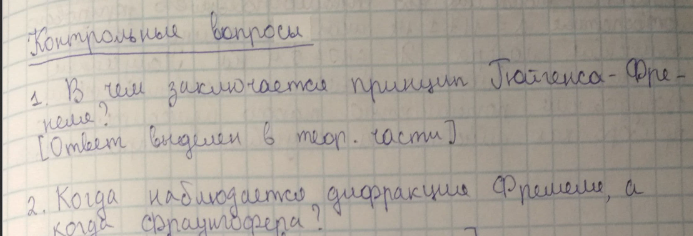 Контрольные вопросы
1. В чем заключается принцип Гюйгенса-Фре-
неля?
[Ответ выделен в теор. части]
2. Когда наблюдается дифракция Френеля, а
когда Фраунгофера?